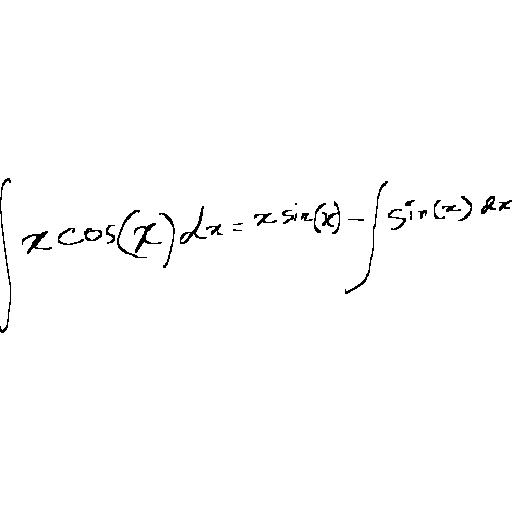 ∫ x cos(x) dx = x sin(x) − ∫ sin(x) dx